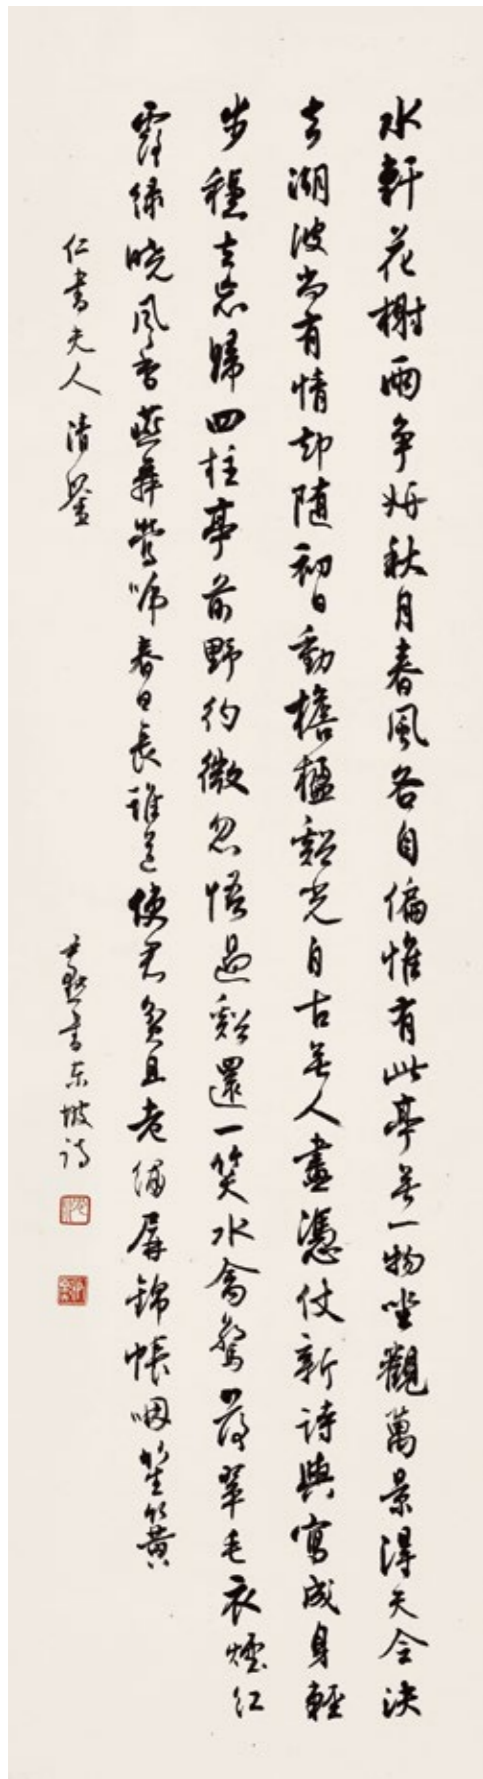 水軒花榭兩争妍秋月春風各自偏惟有此亭無一物坐觀萬景得天全決
去湖波尚有情却隨初日動檐楹谿光自古無人畫憑仗新詩與寫成身輕
步穩去忘歸四柱亭前野彴微忽悟過谿還一笑水禽驚落翠毛衣煙紅
露緑曉風香燕舞鶯啼春日長誰道使君貧且老繡屏錦帳咽笙簧
仁書夫人清鑒
尹默書東坡詩